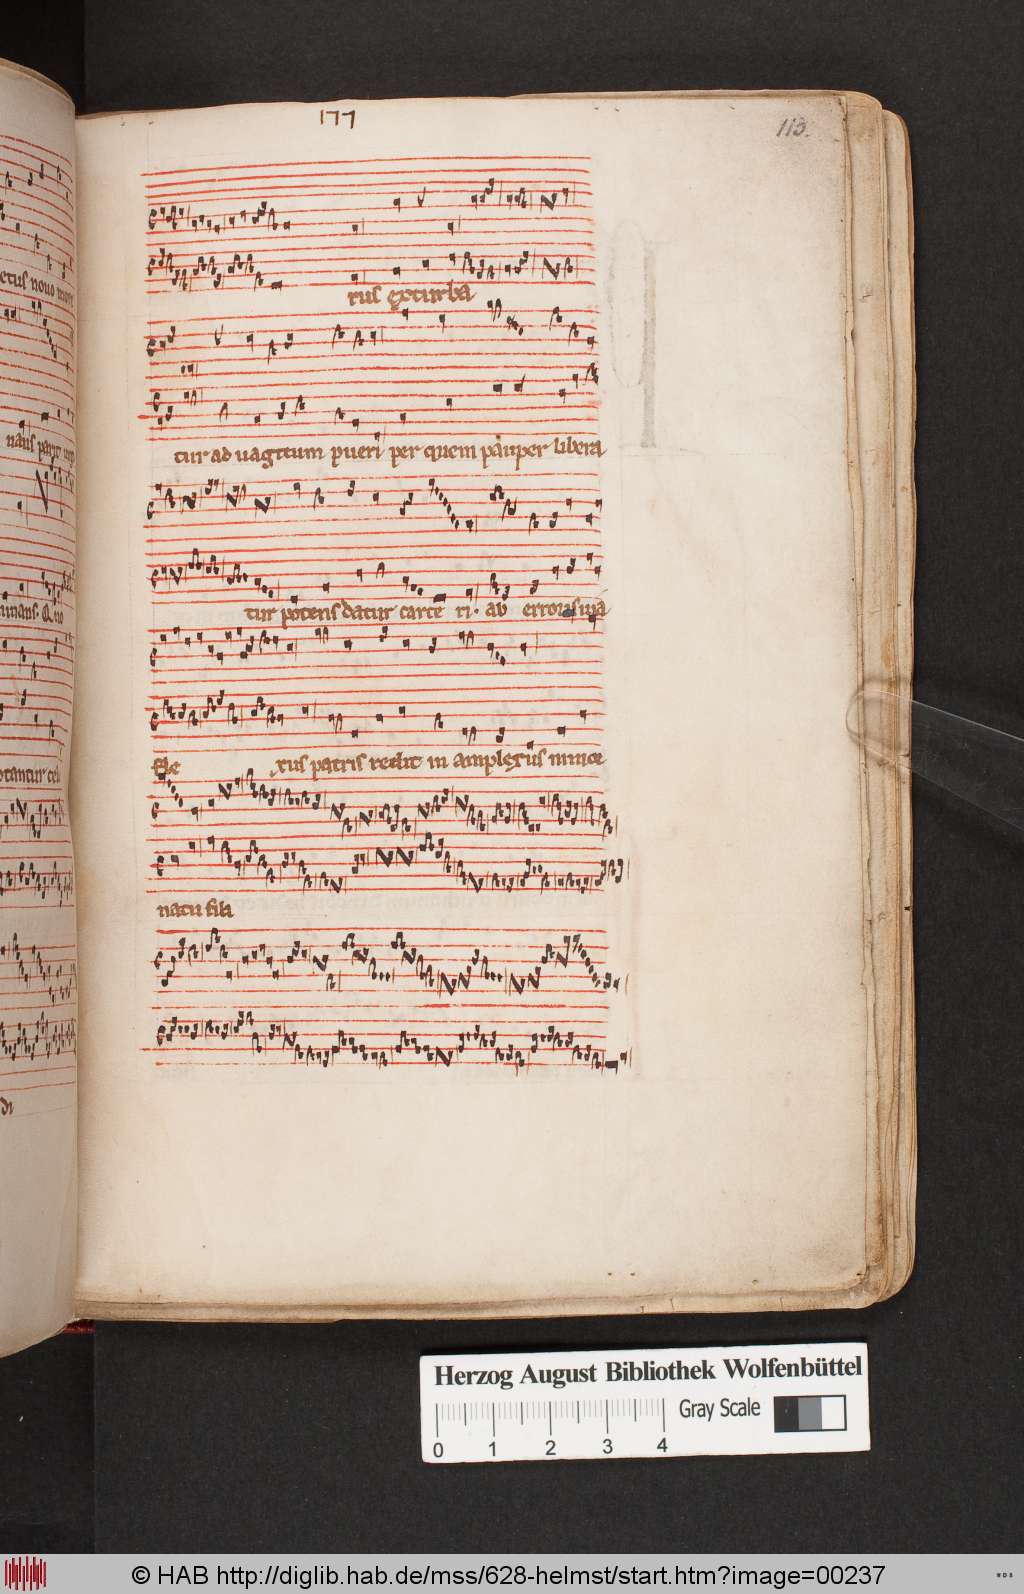 177
113.
rus exturba
tur ad uagitum pueri per quem pauper libera
tur potens datur carce ri. ab erroris uia
fle xus patris redit in amplexus
natu filii
Herzog August Bibliothek Wolfenbüttel
Gray Scale
0 1 2 3 4
© HAB http://diglib.hab.de/mss/628-helmst/start.htm?image=00237